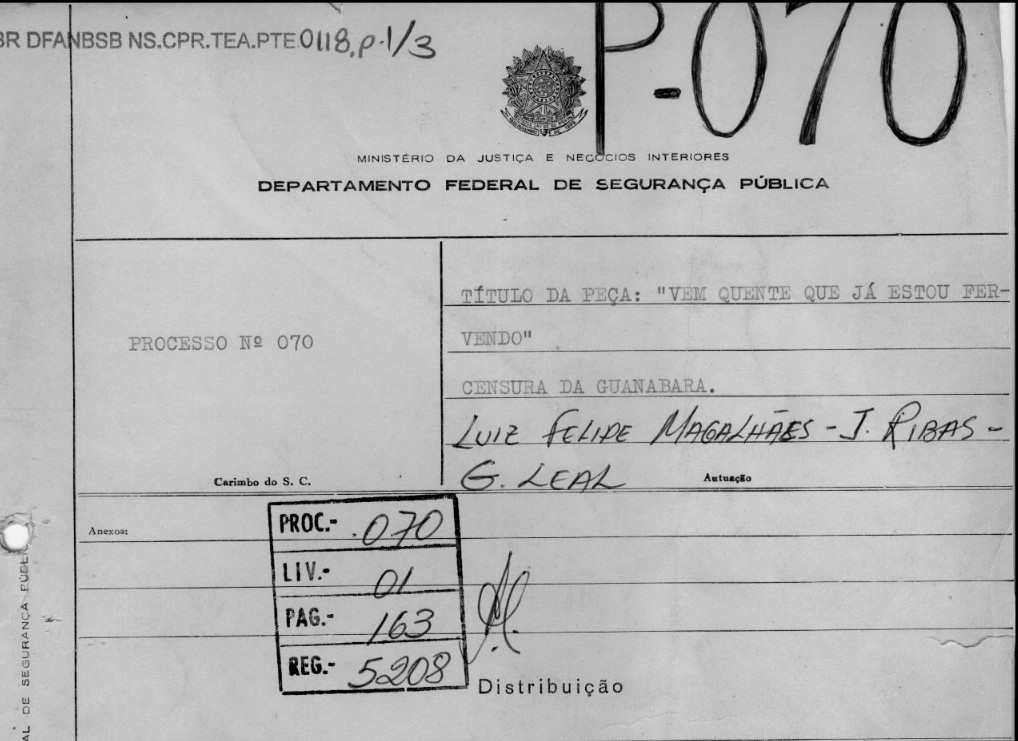 BR DFANBSB NS.CPR.TEA.PTE.0118, p.1/3
P-070
MINISTÉRIO DA JUSTIÇA E NEGÓCIOS INTERIORES
DEPARTAMENTO FEDERAL DE SEGURANÇA PÚBLICA
PROCESSO Nº 070
Carimbo do S. C.
TÍTULO DA PEÇA: "VEM QUENTE QUE JÁ ESTOU FER-
VENDO"
CENSURA DA GUANABARA.
LUIZ FELIPE MAGALHÃES - J. RIBAS -
G. LEAL
Autuação
Anexos:
PROC.- 070
LIV.- 01
PAG.- 163
REG.- 5208
Distribuição
AL DE SEGURANÇA PÚBL